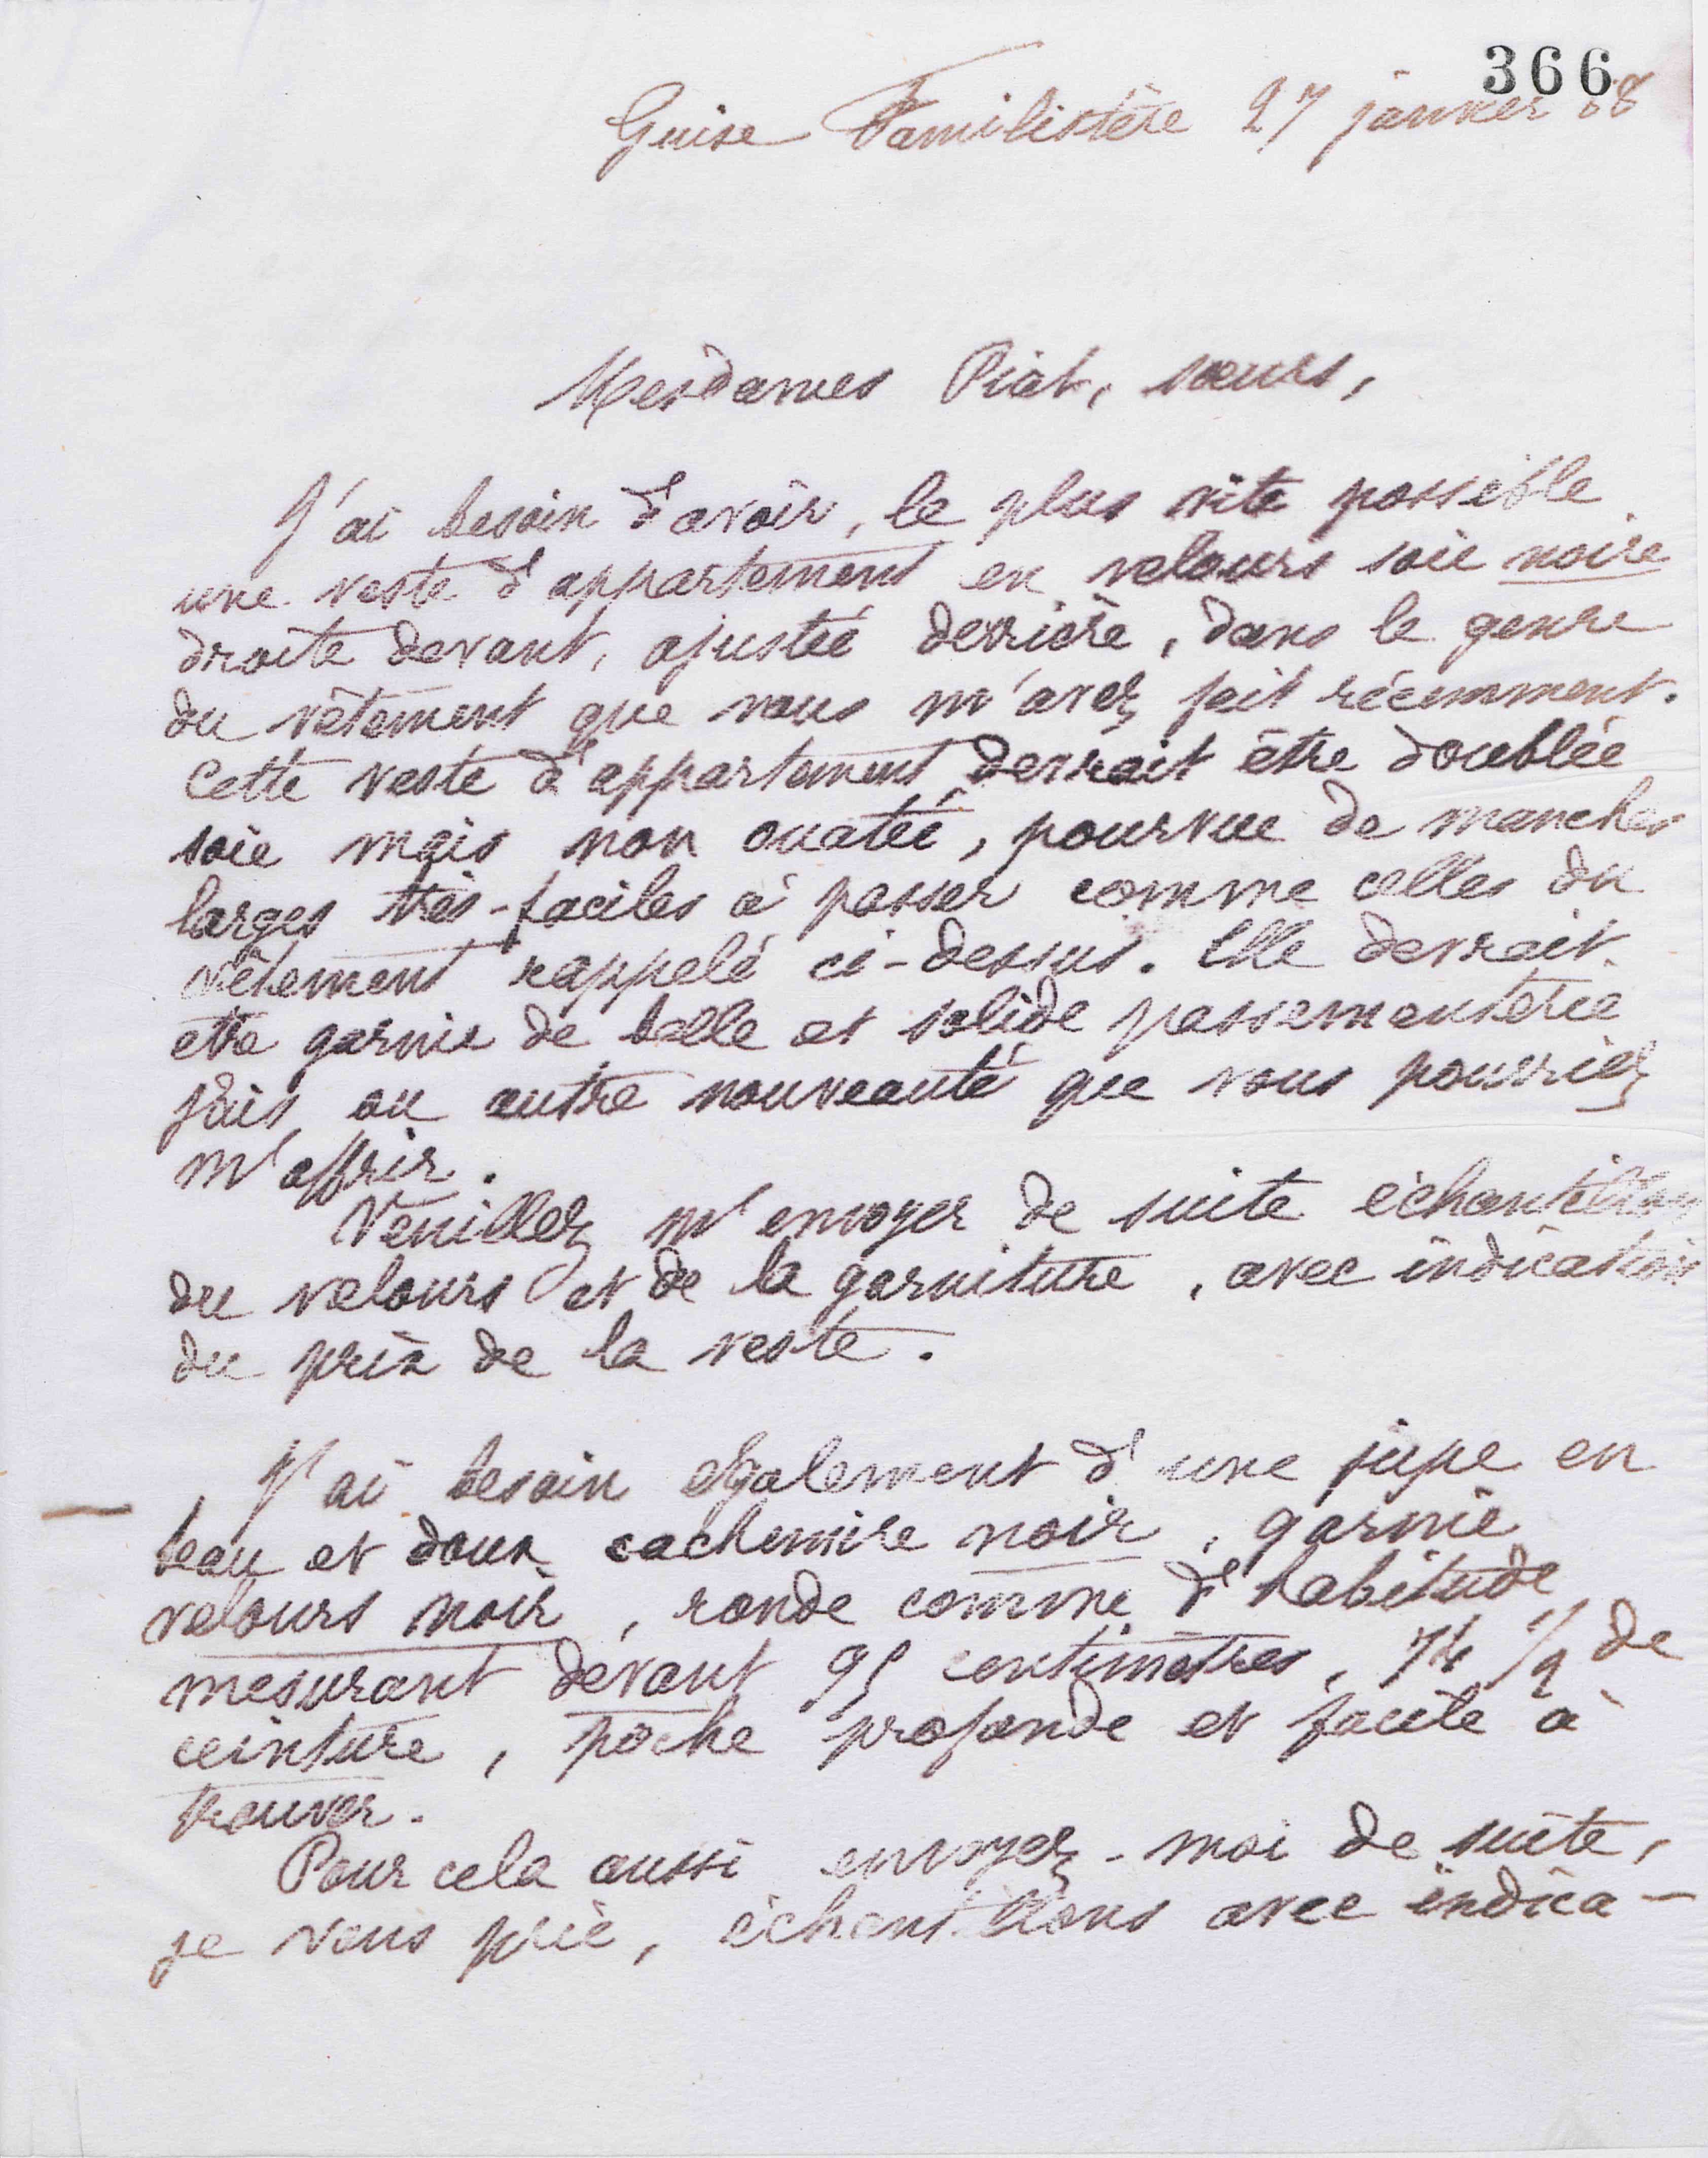 366
Guise Familistère 27 janvier 88
Mesdames Piat, sœurs,
J'ai besoin d'avoir, le plus vite possible
une veste d'appartement en velours soie noire
droite devant, ajustée derrière, dans le genre
du vêtement que vous m'avez fait récemment.
Cette veste d'appartement devrait être doublée
soie mais non ouatée, pourvue de manches
larges très-faciles à passer comme celles du
vêtement rappelé ci-dessus. Elle devrait
être garnie de belle et solide passementerie
jais ou autre nouveauté que vous pourriez
m'offrir.
Veuillez m'envoyer de suite échantillon
du velours et de la garniture, avec indication
du prix de la veste.
J'ai besoin également d'une jupe en
beau et doux cachemire noir, garnie
velours noir, ronde comme d'habitude
mesurant devant 95 centimètres, 74 1/2 de
ceinture, poche profonde et facile à
trouver.
Pour cela aussi envoyez-moi de suite,
je vous prie, échantillons avec indica-